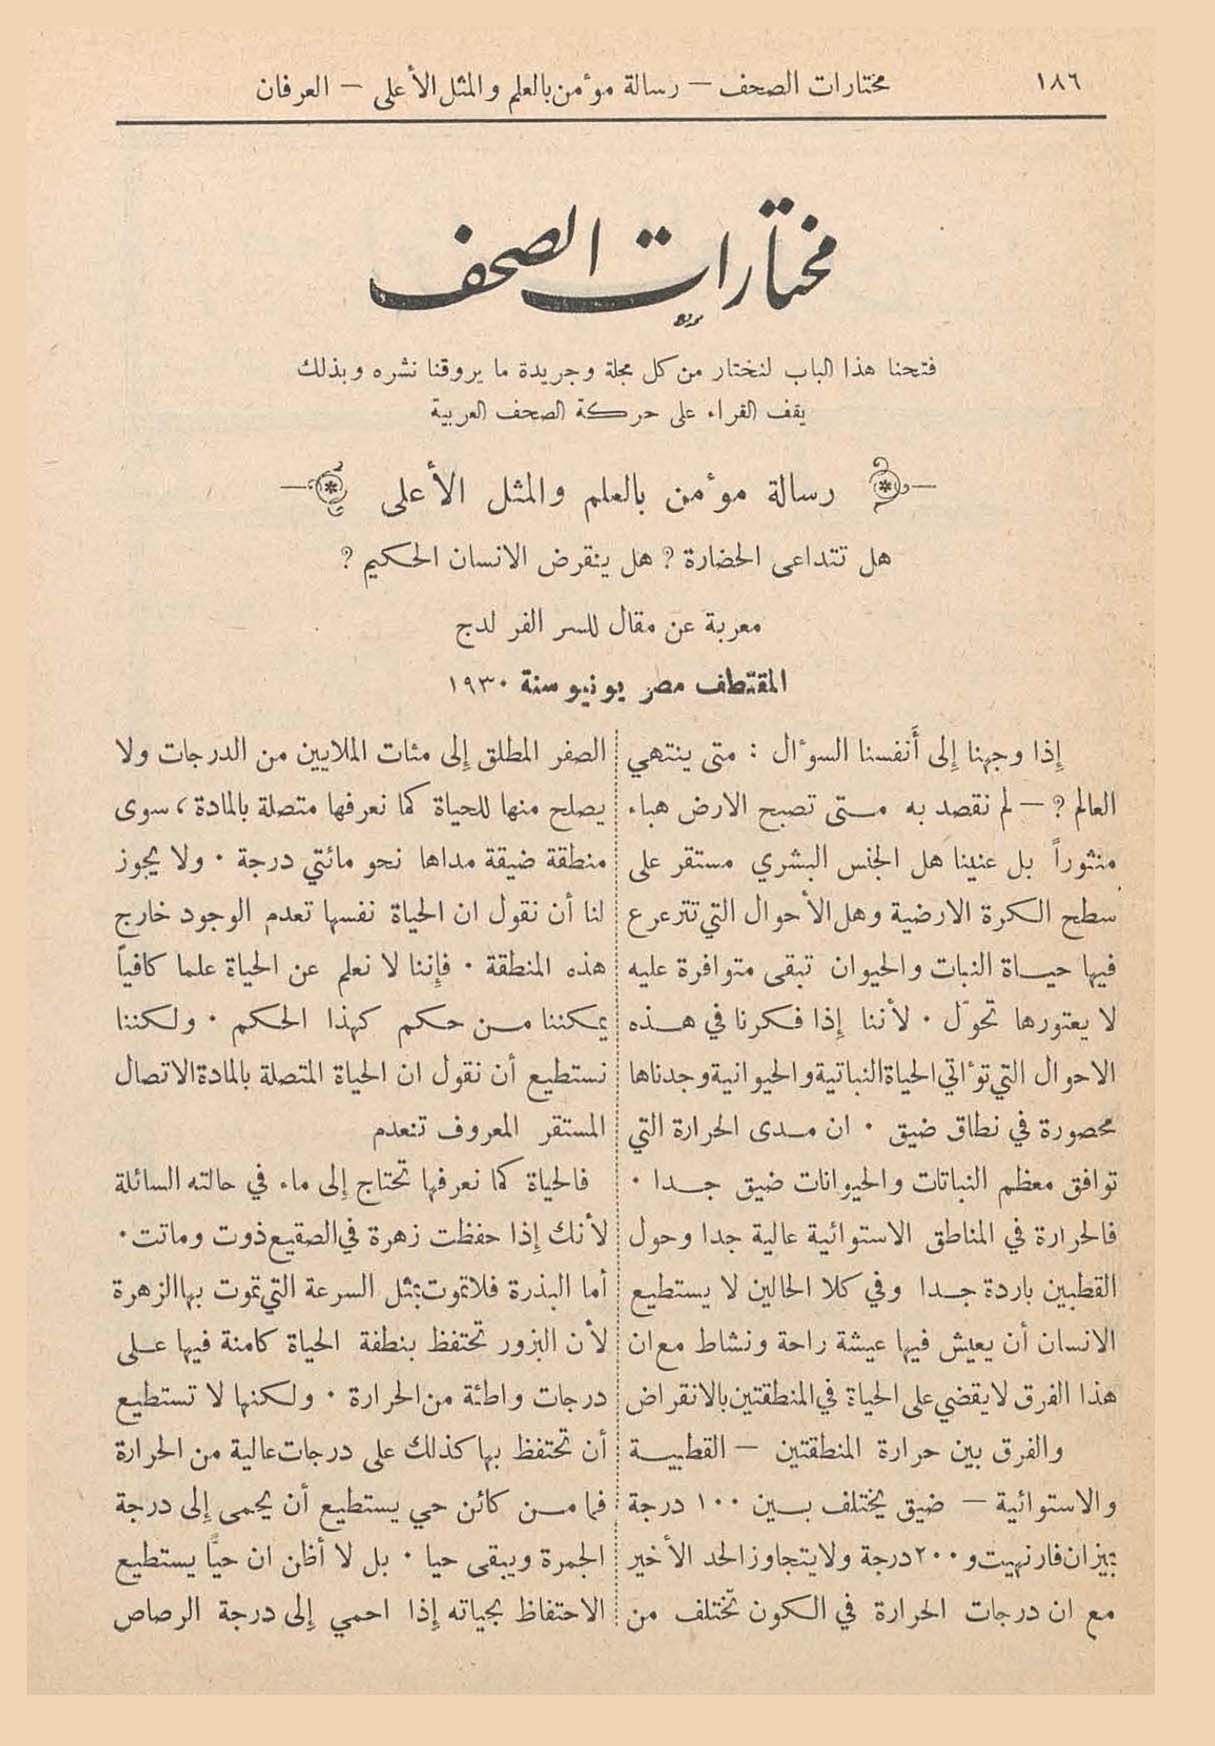 ١٨٦
مختارات الصحف — رسالة موٴمن بالعلم والمثل الأعلى — العرفان
مختارات الصحف
فتحنا هذا الباب لنختار من كل مجلة وجريدة ما يروقنا نشره وبذلك
يقف القراء على حركة الصحف العربية
رسالة موٴمن بالعلم والمثل الأعلى
هل تتداعى الحضارة ? هل ينقرض الانسان الحكيم ?
معربة عن مقال للسر الفر لدج
المقتطف مصر يونيو سنة ١٩٣٠
إذا وجهنا إلى أَنفسنا السوٴال : متى ينتهي
العالم ? — لم نقصد به متى تصبح الارض هباء
منثوراً بل عنينا هل الجنس البشري مستقر على
سطح الكرة الارضية وهل الأحوال التي تترعرع
فيها حياة النبات والحيوان تبقى متوافرة عليه
لا يعتورها تحوّل . لأننا إذا فكرنا في هذه
الاحوال التي توٴاتي الحياة النباتية والحيوانية وجدناها
محصورة في نطاق ضيق . ان مدى الحرارة التي
توافق معظم النباتات والحيوانات ضيق جدا .
فالحرارة في المناطق الاستوائية عالية جدا وحول
القطبين باردة جدا وفي كلا الحالين لا يستطيع
الانسان أن يعيش فيها عيشة راحة ونشاط مع ان
هذا الفرق لا يقضي على الحياة في المنطقتين بالانقراض
والفرق بين حرارة المنطقتين — القطبية
والاستوائية — ضيق يختلف بين ١٠٠ درجة
بميزان فارنهيت و ٢٠٠ درجة ولا يتجاوز الحد الأخير
مع ان درجات الحرارة في الكون تختلف من
الصفر المطلق إلى مئات الملايين من الدرجات ولا
يصلح منها للحياة كما نعرفها متصلة بالمادة ، سوى
منطقة ضيقة مداها نحو مائتي درجة . ولا يجوز
لنا أن نقول ان الحياة نفسها تعدم الوجود خارج
هذه المنطقة . فإننا لا نعلم عن الحياة علما كافياً
يمكننا من حكم كهذا الحكم . ولكننا
نستطيع أن نقول ان الحياة المتصلة بالمادة الاتصال
المستقر المعروف تنعدم
فالحياة كما نعرفها تحتاج إلى ماء في حالته السائلة
لأنك إذا حفظت زهرة في الصقيع ذوت وماتت .
أما البذرة فلا تموت بمثل السرعة التي تموت بها الزهرة
لأن البزور تحتفظ بنطفة الحياة كامنة فيها على
درجات واطئة من الحرارة . ولكنها لا تستطيع
أن تحتفظ بها كذلك على درجات عالية من الحرارة
فما من كائن حي يستطيع أن يحمى إلى درجة
الجمرة ويبقى حيا . بل لا أظن ان حيًّا يستطيع
الاحتفاظ بحياته إذا احمي إلى درجة الرصاص